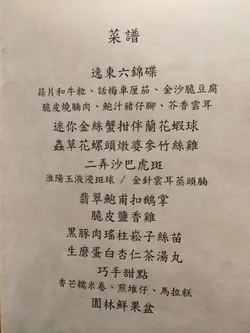 菜譜
逸東六錦碟
蒜片和牛粒、話梅車厘茄、金沙脆豆腐
脆皮燒腩肉、鮑汁豬仔腳、芥香雲耳
迷你金絲蟹拑伴蘭花蝦球
蟲草花螺頭燉婆參竹絲雞
二弄沙巴虎斑
淮陽玉液浸斑球 / 金針雲耳蒸頭腩
翡翠鮑甫扣鵝掌
脆皮鹽香雞
黑豚肉瑤柱崧子絲苗
生磨蛋白杏仁茶湯丸
巧手甜點
香芒糯米卷、煎堆仔、馬拉糕
園林鮮果盆